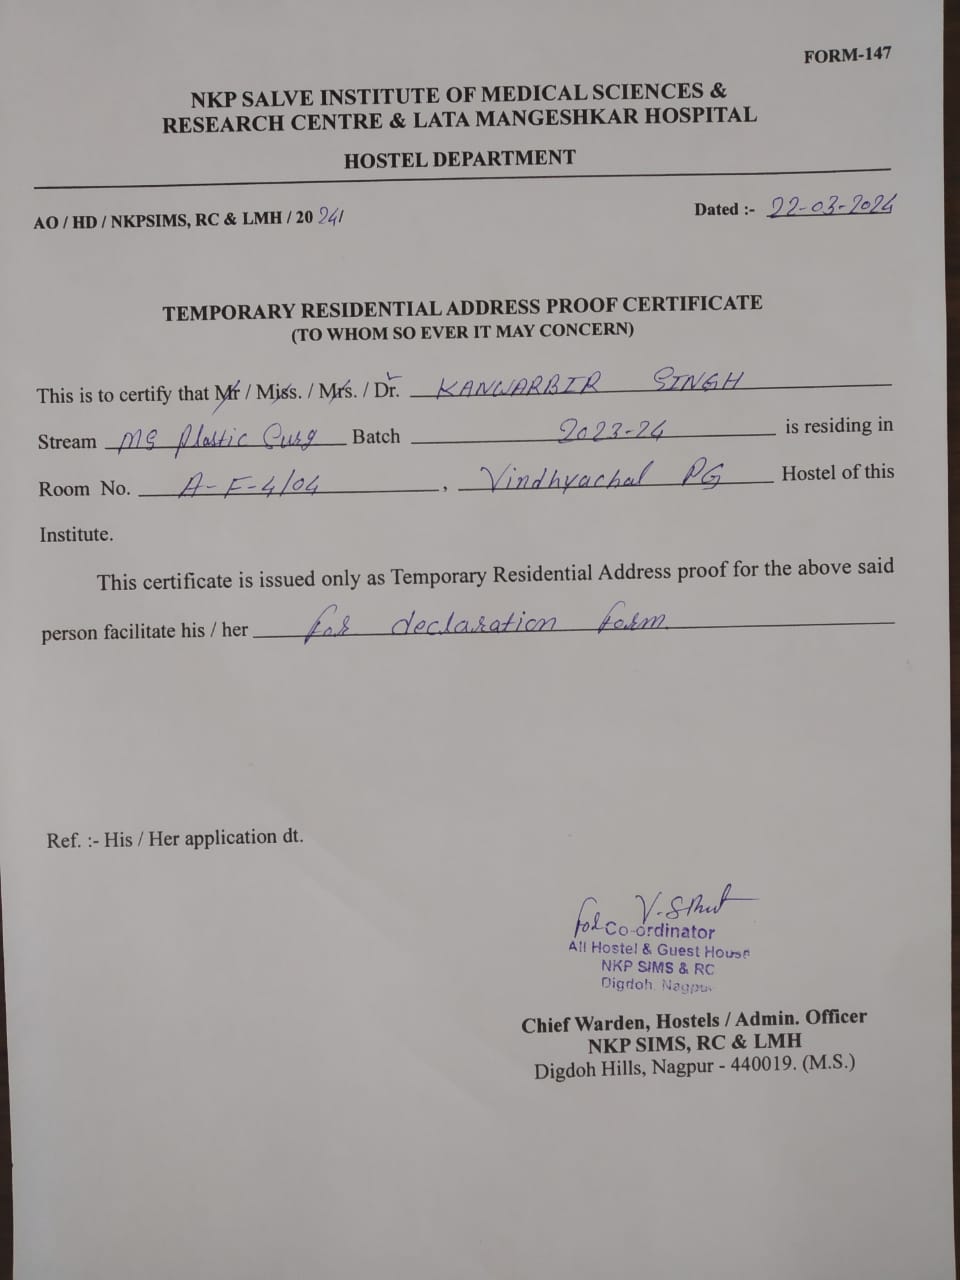 FORM-147
NKP SALVE INSTITUTE OF MEDICAL SCIENCES &
RESEARCH CENTRE & LATA MANGESHKAR HOSPITAL
HOSTEL DEPARTMENT
AO / HD / NKPSIMS, RC & LMH / 2024/
Dated :- 22-03-2024
TEMPORARY RESIDENTIAL ADDRESS PROOF CERTIFICATE
(TO WHOM SO EVER IT MAY CONCERN)
This is to certify that Mr / Miss. / Mrs. / Dr. KANWARBIR SINGH
Stream MS Plastic Surg Batch 2023-24 is residing in
Room No. A-F-4/04, Vindhyachal PG Hostel of this
Institute.
This certificate is issued only as Temporary Residential Address proof for the above said
person facilitate his / her for declaration form
Ref. :- His / Her application dt.
for
Co-ordinator
All Hostel & Guest House
NKP SIMS & RC
Digdoh, Nagpur
Chief Warden, Hostels / Admin. Officer
NKP SIMS, RC & LMH
Digdoh Hills, Nagpur - 440019. (M.S.)